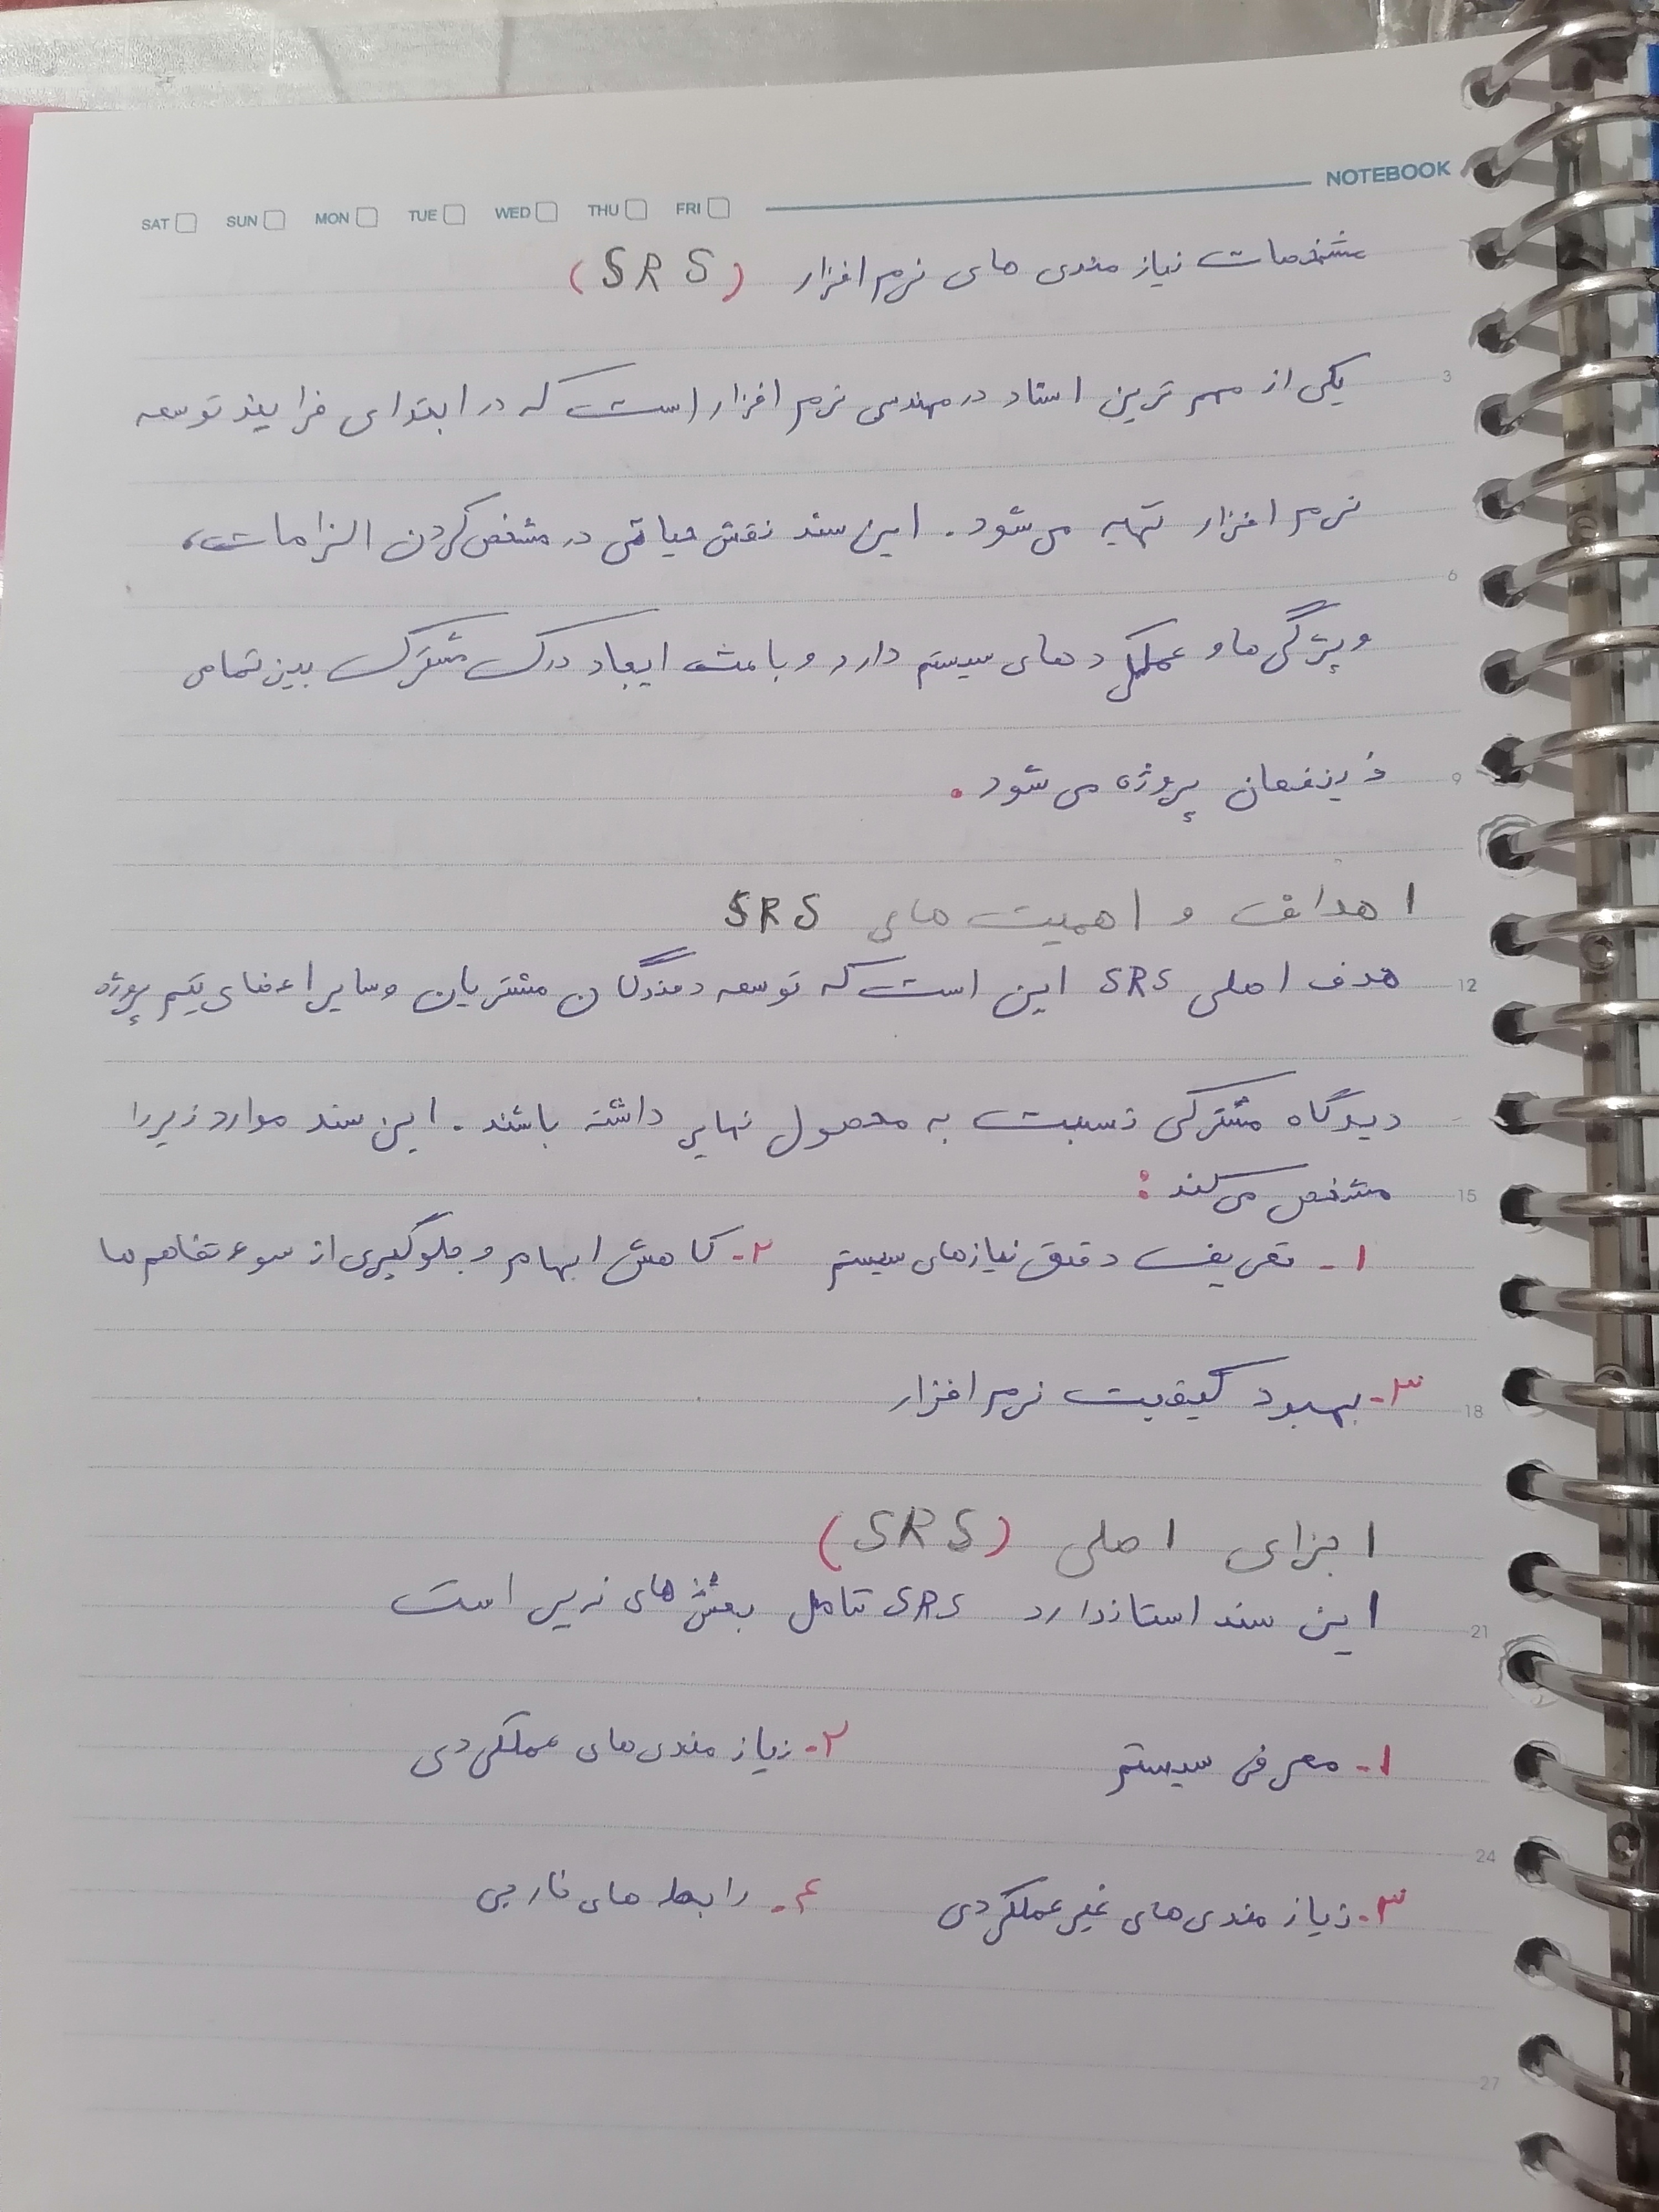 NOTEBOOK
SAT SUN MON TUE WED THU FRI
مشخصات نیاز مندی های نرم افزار (SRS)
3
یکی از مهم ترین اسناد در مهندسی نرم افزار است که در ابتدای فرایند توسعه
نرم افزار تهیه می شود. این سند نقش حیاتی در مشخص کردن الزامات،
6
ویژگی ها و عملکرد های سیستم دارد و باعث ایجاد درک مشترک بین تمامی
ذینفعان پروژه می شود.
9
اهداف و اهمیت های SRS
هدف اصلی SRS این است که توسعه دهندگان مشتریان و سایر اعضای تیم پروژه
12
دیدگاه مشترکی نسبت به محصول نهایی داشته باشند. این سند موارد زیر را
مشخص می کند:
15
۱- تعریف دقیق نیازهای سیستم ۲- کاهش ابهام و جلوگیری از سوء تفاهم ها
۳- بهبود کیفیت نرم افزار
18
اجزای اصلی (SRS)
این سند استاندارد SRS شامل بخش های زیر است
21
۱- معرفی سیستم ۲- نیاز مندی های عملکردی
24
۳- نیاز مندی های غیر عملکردی ۴- رابط های خارجی
27